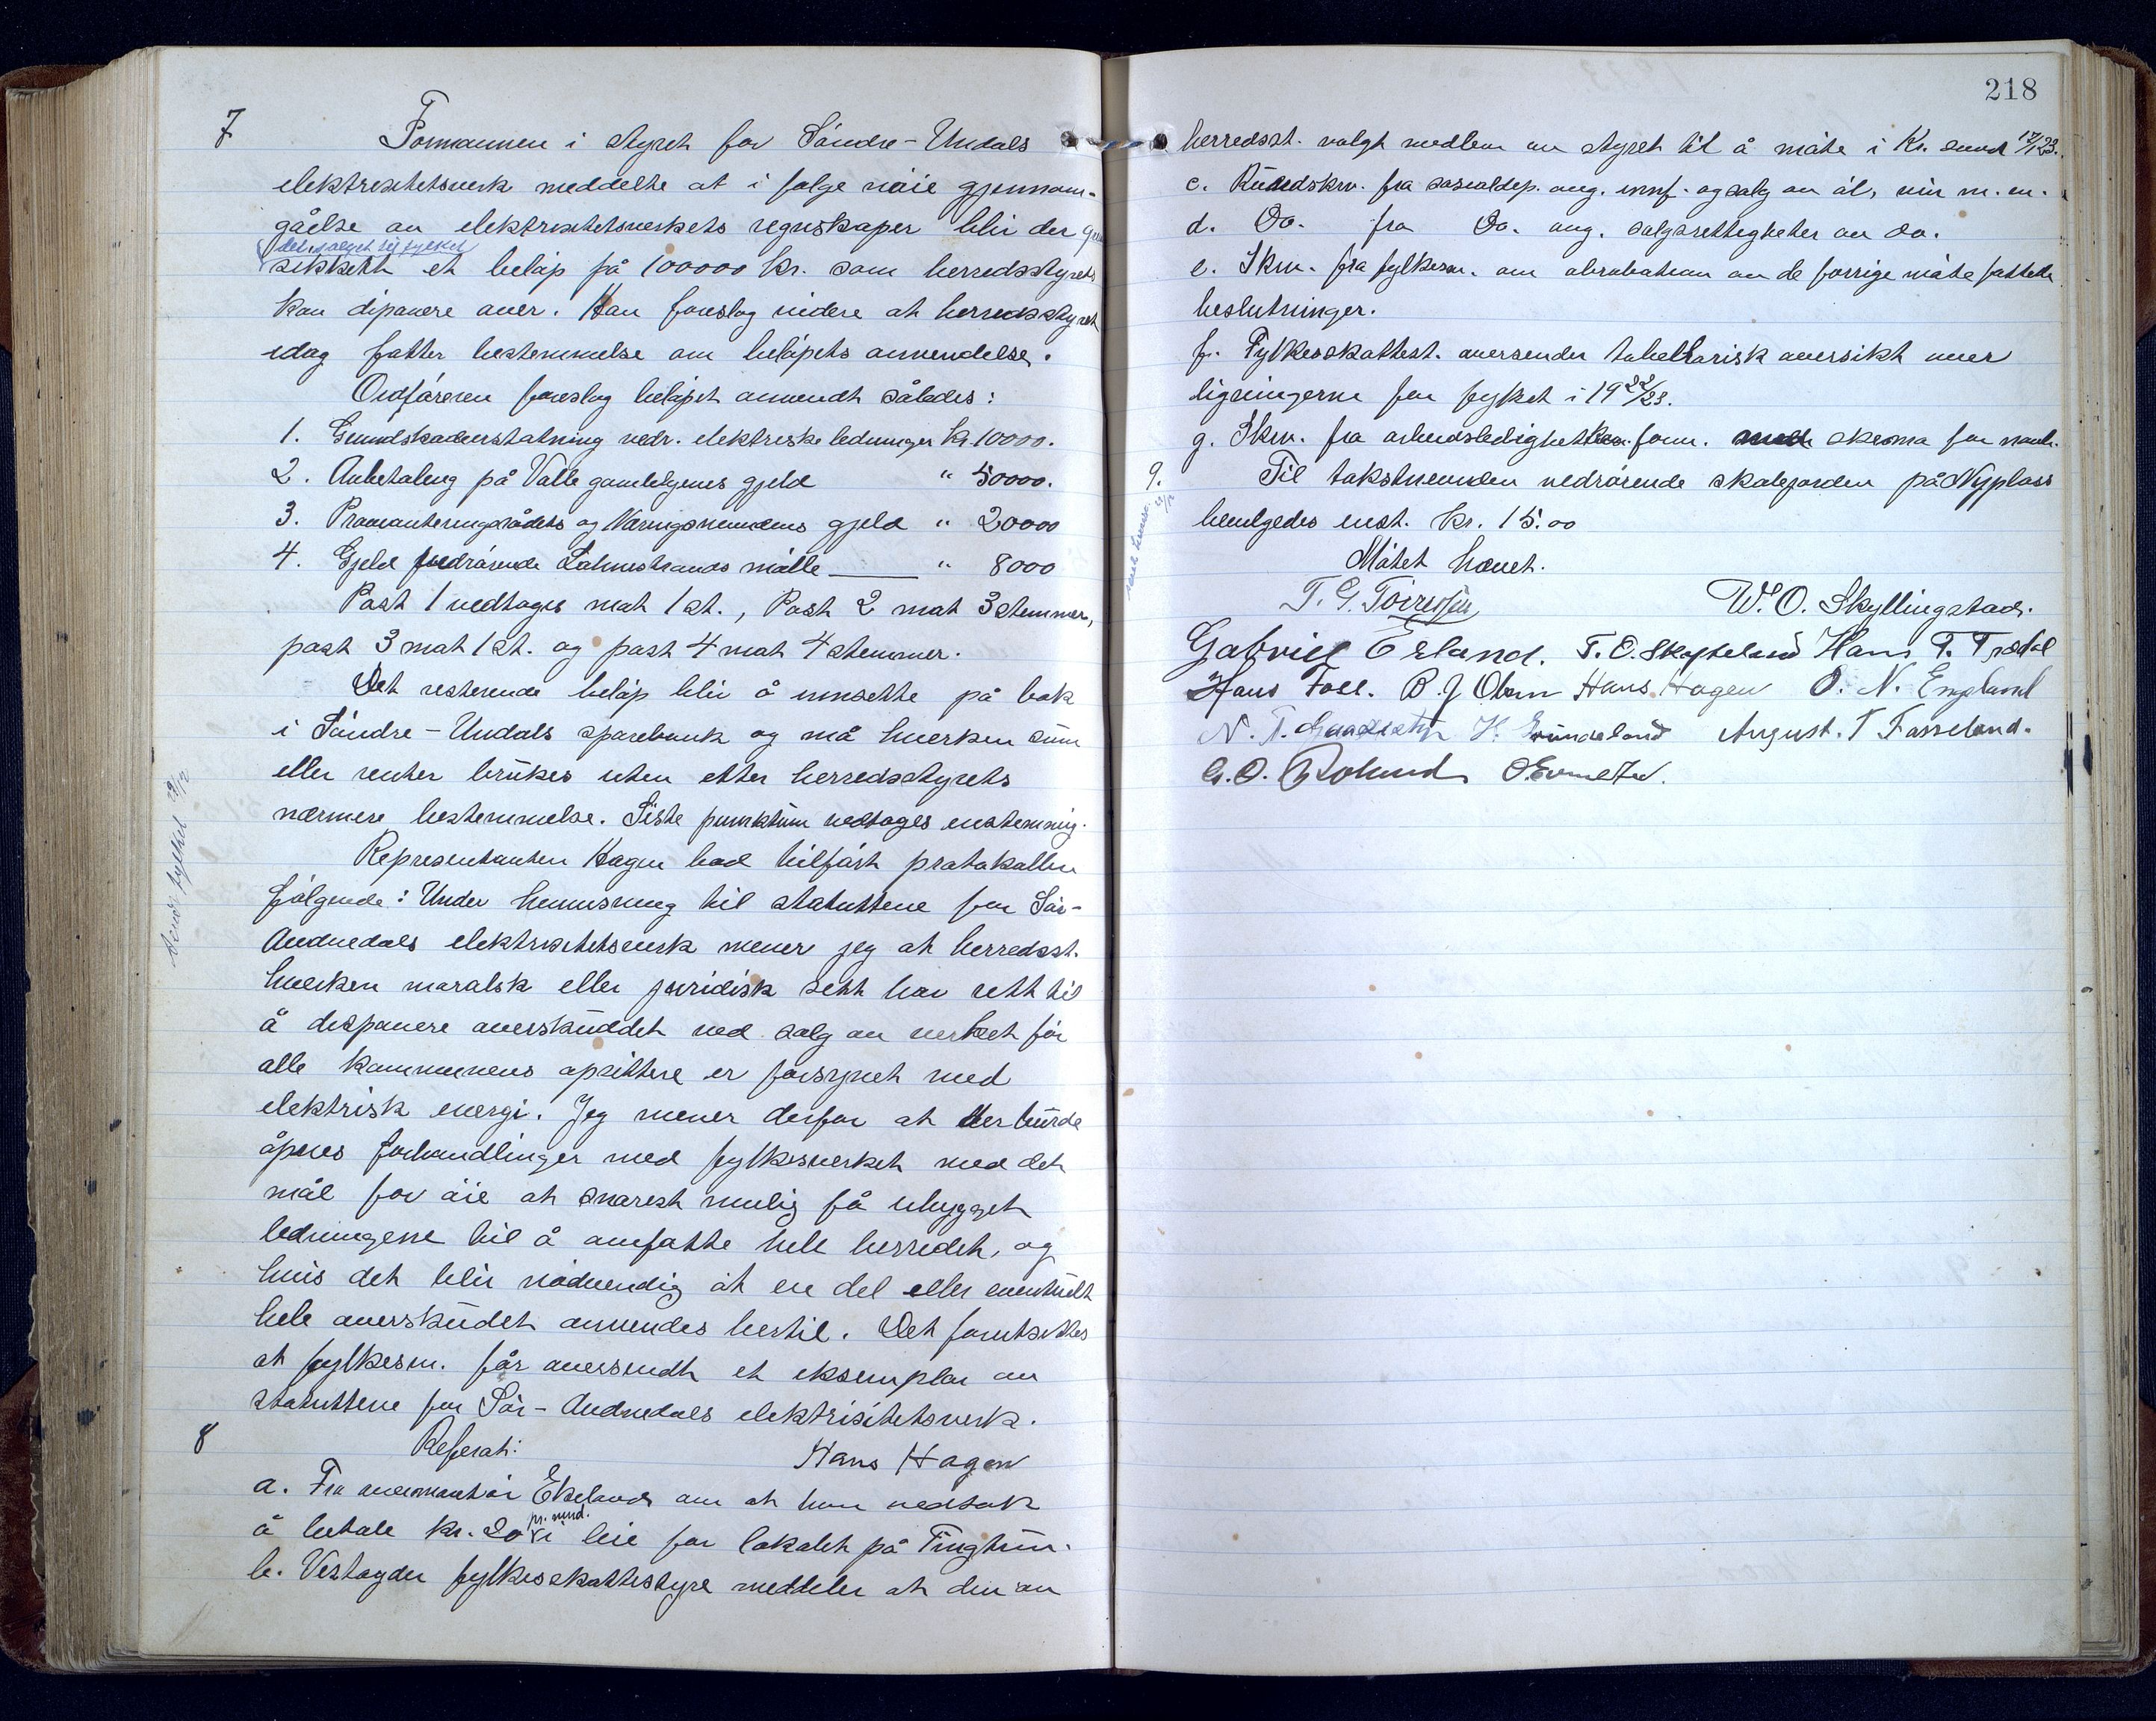 7 Formannen i styret for Söndre-Undals
elektrisitetsverk meddelte at i følge nöie gjennom-
gåelse av elektrisitetsverkets regnskaper blir der
sikkett et beløp på 100000 kr. som herredsstyret
kan disponere over. Han foreslog videre at herredsstyret
idag fatter bestemmelse om beløpets anvendelse.
Ordføreren foreslog beløpet anvendt således:
1. Grundskadeerstatning vedr. elektriske ledninger kr. 10000.
2. Anbetaling på Valle gamlehjems gjeld " 50000.
3. Provianteringsrådets og Næringsnemndens gjeld " 20000
4. Gjeld vedrørende Lohnestrands mølle " 8000
Post 1 vedtoges mot 1 st., Post 2 mot 3 stemmer,
post 3 mot 1 st. og post 4 mot 4 stemmer.
Det resterende beløp blir å innsette på bok
i Söndre-Undals sparebank og må hverken sum
eller renter brukes uten etter herredsstyrets
nærmere bestemmelse. Siste punktum vedtoges enstemmig.
Representanten Hagen bad tilført protokollen
følgende: Under henvisning til statuttene for Sör-
Audnedals elektrisitetsverk mener jeg at herredsst.
hverken moralsk eller juridisk sett har rett til
å disponere overskuddet ved salg av verket før
alle kommunens opsittere er forsynet med
elektrisk energi. Jeg mener derfor at der burde
åpnes forhandlinger med fylkesverket med det
mål for öie at snarest mulig få utbygget
ledningene til å omfatte hele herredet, og
hvis det blir nødvendig at en del eller eventuelt
hele overskudet anvendes hertil. Det forutsettes
at fylkesm. får oversendt et eksemplar av
statuttene for Sör-Audnedals elektrisitetsverk.
8 Referat: Hans Hagen
a. Fra overmontör Ekeland om at han vedtok
pr. mnd.
å betale kr. 20 i leie for lokalet på Tingtun.
b. Vestagder fylkesskattestyre meddeler at den av
sendt fylket 29/12
218
herredsst. valgt medlem av styret til å møte i Kr. sand 17/1 23.
c. Rundskrv. fra sosialdep. ang. innf. og salg av öl, vin m. en.
d. Do. fra Do. ang. salgsrettigheter av do.
e. Skrv. fra fylkesm. om abrobation av de forrige møte fattede
beslutninger.
f. Fylkesskattest. oversender tabellarisk oversikt over
ligningerne for fylket i 1922/23.
g. Skrv. fra arbeidsledighetskom. form. med skema for
9. Til takstnemnden vedrørende skolejorden på Nyplass
bevilgedes enst. kr. 15.00
Møtet hævet.
T. G. Torressen W. O. Skyllingstad.
Gabriel Erland. T. O. Skofteland Hans T. Trædal
Hans Foss. B. J. Olsen Hans Hagen O. N. England
H. Svindland August. T Fasseland.